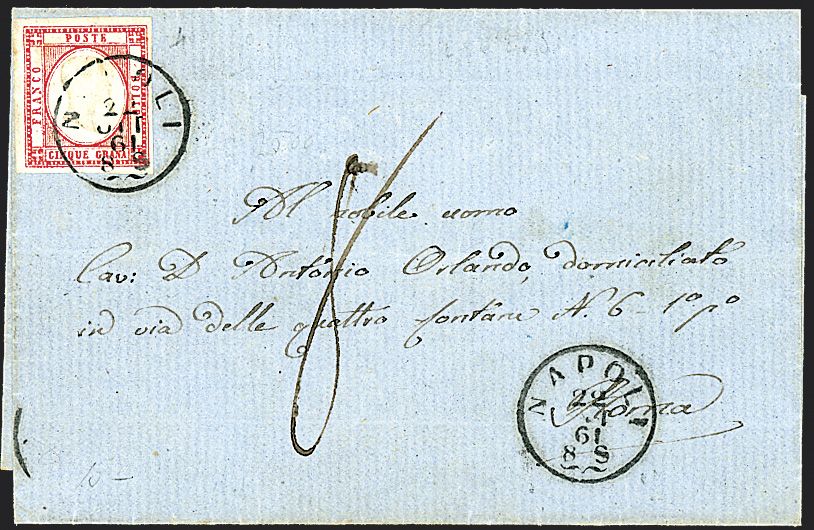 POSTE
FRANCO
CINQUE GRANA
NAPOLI
61
8 S
8
Al nobile uomo
Cav: D Antonio Orlando, domiciliato
in via delle quattro fontane N. 6 - 1º pº
Roma
NAPOLI
22
61
8 S